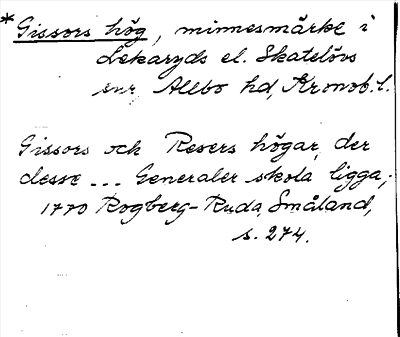 *Gissors hög, minnesmärke i
Lekaryds el. Skatelövs
snr Allbo hd, Kronob. l.
Gissors och Resers högar, der
desse --- Generaler skola ligga;
1770 Rogberg-Ruda, Småland,
s. 274.